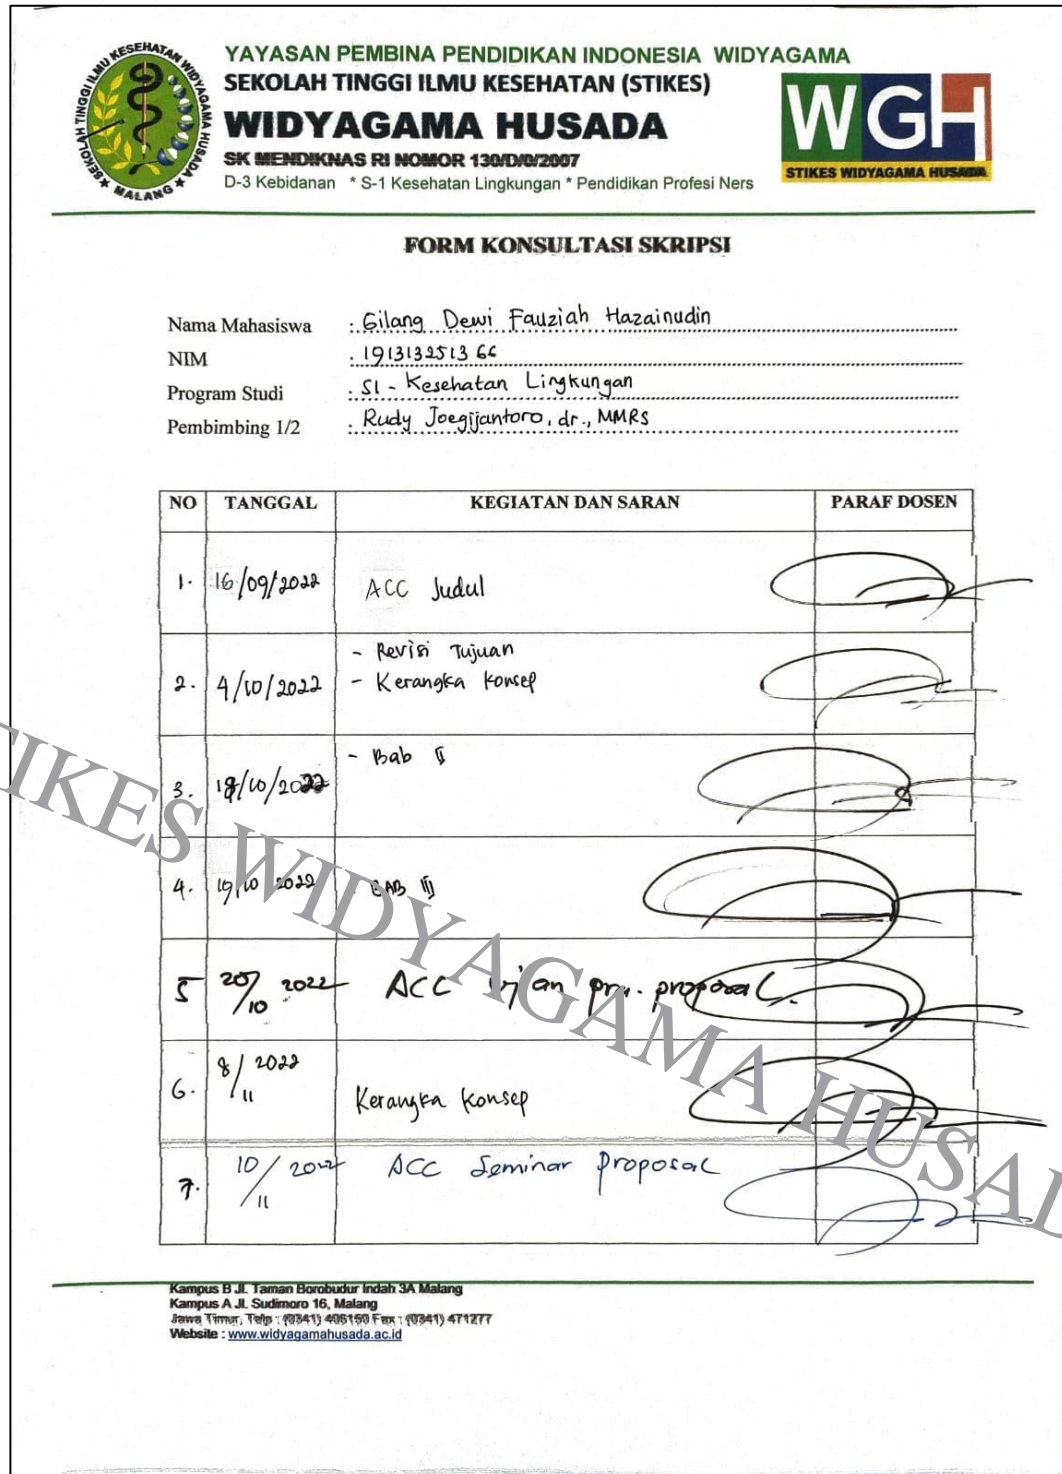 SEKOLAH TINGGI ILMU KESEHATAN WIDYAGAMA HUSADA
MALANG
YAYASAN PEMBINA PENDIDIKAN INDONESIA WIDYAGAMA
SEKOLAH TINGGI ILMU KESEHATAN (STIKES)
WIDYAGAMA HUSADA
SK MENDIKNAS RI NOMOR 130/D/0/2007
D-3 Kebidanan * S-1 Kesehatan Lingkungan * Pendidikan Profesi Ners
WGH
STIKES WIDYAGAMA HUSADA
FORM KONSULTASI SKRIPSI
Nama Mahasiswa : Gilang Dewi Fauziah Hazainudin
NIM : 191313251366
Program Studi : S1 - Kesehatan Lingkungan
Pembimbing 1/2 : Rudy Joegijantoro, dr., MMRS
NO TANGGAL KEGIATAN DAN SARAN PARAF DOSEN
1. 16/09/2022 ACC Judul
2. 4/10/2022 - Revisi Tujuan
- Kerangka Konsep
3. 18/10/2022 - Bab II
4. 19/10/2022 BAB
5 20/10 2022 ACC pra. proposal.
6. 8/11 2022 Kerangka Konsep
7. 10/11 2022 ACC Seminar Proposal
STIKES WIDYAGAMA HUSADA
Kampus B Jl. Taman Borobudur Indah 3A Malang
Kampus A Jl. Sudimoro 16, Malang
Jawa Timur, Telp : (0341) 406150 Fax : (0341) 471277
Website : www.widyagamahusada.ac.id